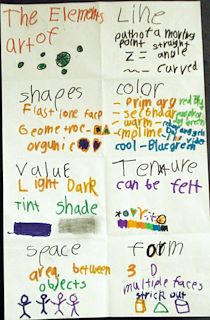 The Elements
art of
Line
path of a moving
point straight
Z = angle
curved
shapes
Flast one face
Geometroc -
orgunic
color
- primary red
- secondary
- warm - red
cool - Blue green
Value
Light Dark
Tint Shade
Texture
can be felt
Space
area between
objects
form
3 D
multiple faces
stricK out